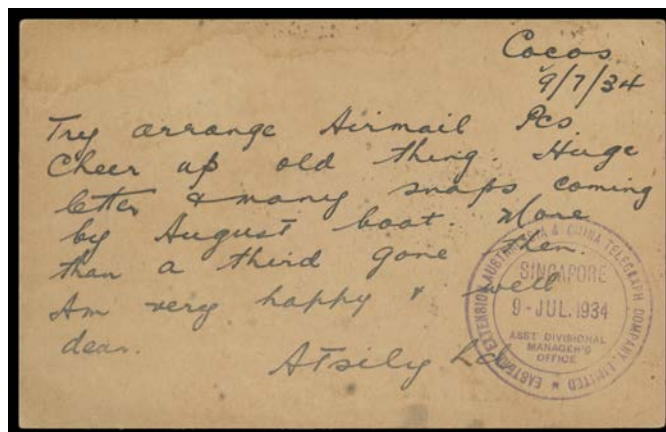 Cocos
9/7/34
Try arrange Airmail Pcs
Cheer up old thing. Huge
letter & many snaps coming
by August boat. More
than a third gone then.
Am very happy & well
dear.
EASTERN EXTENSION AUSTRALASIA & CHINA TELEGRAPH COMPANY, LIMITED
SINGAPORE
9 - JUL. 1934
ASST DIVISIONAL
MANAGER'S
OFFICE